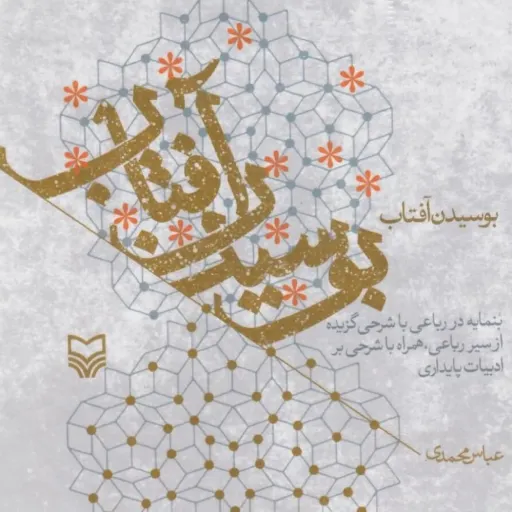 بوسیدن آفتاب
بوسیدن آفتاب
بنمایه در رباعی با شرحی گزیده
از سیر رباعی، همراه با شرحی بر
ادبیات پایداری
عباس محمدی